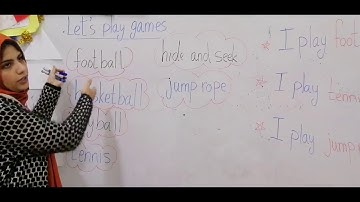 Let's play games
football
hide and seek
basketball
jump rope
tennis
* I play foot
* I play tennis
* I play jump ro